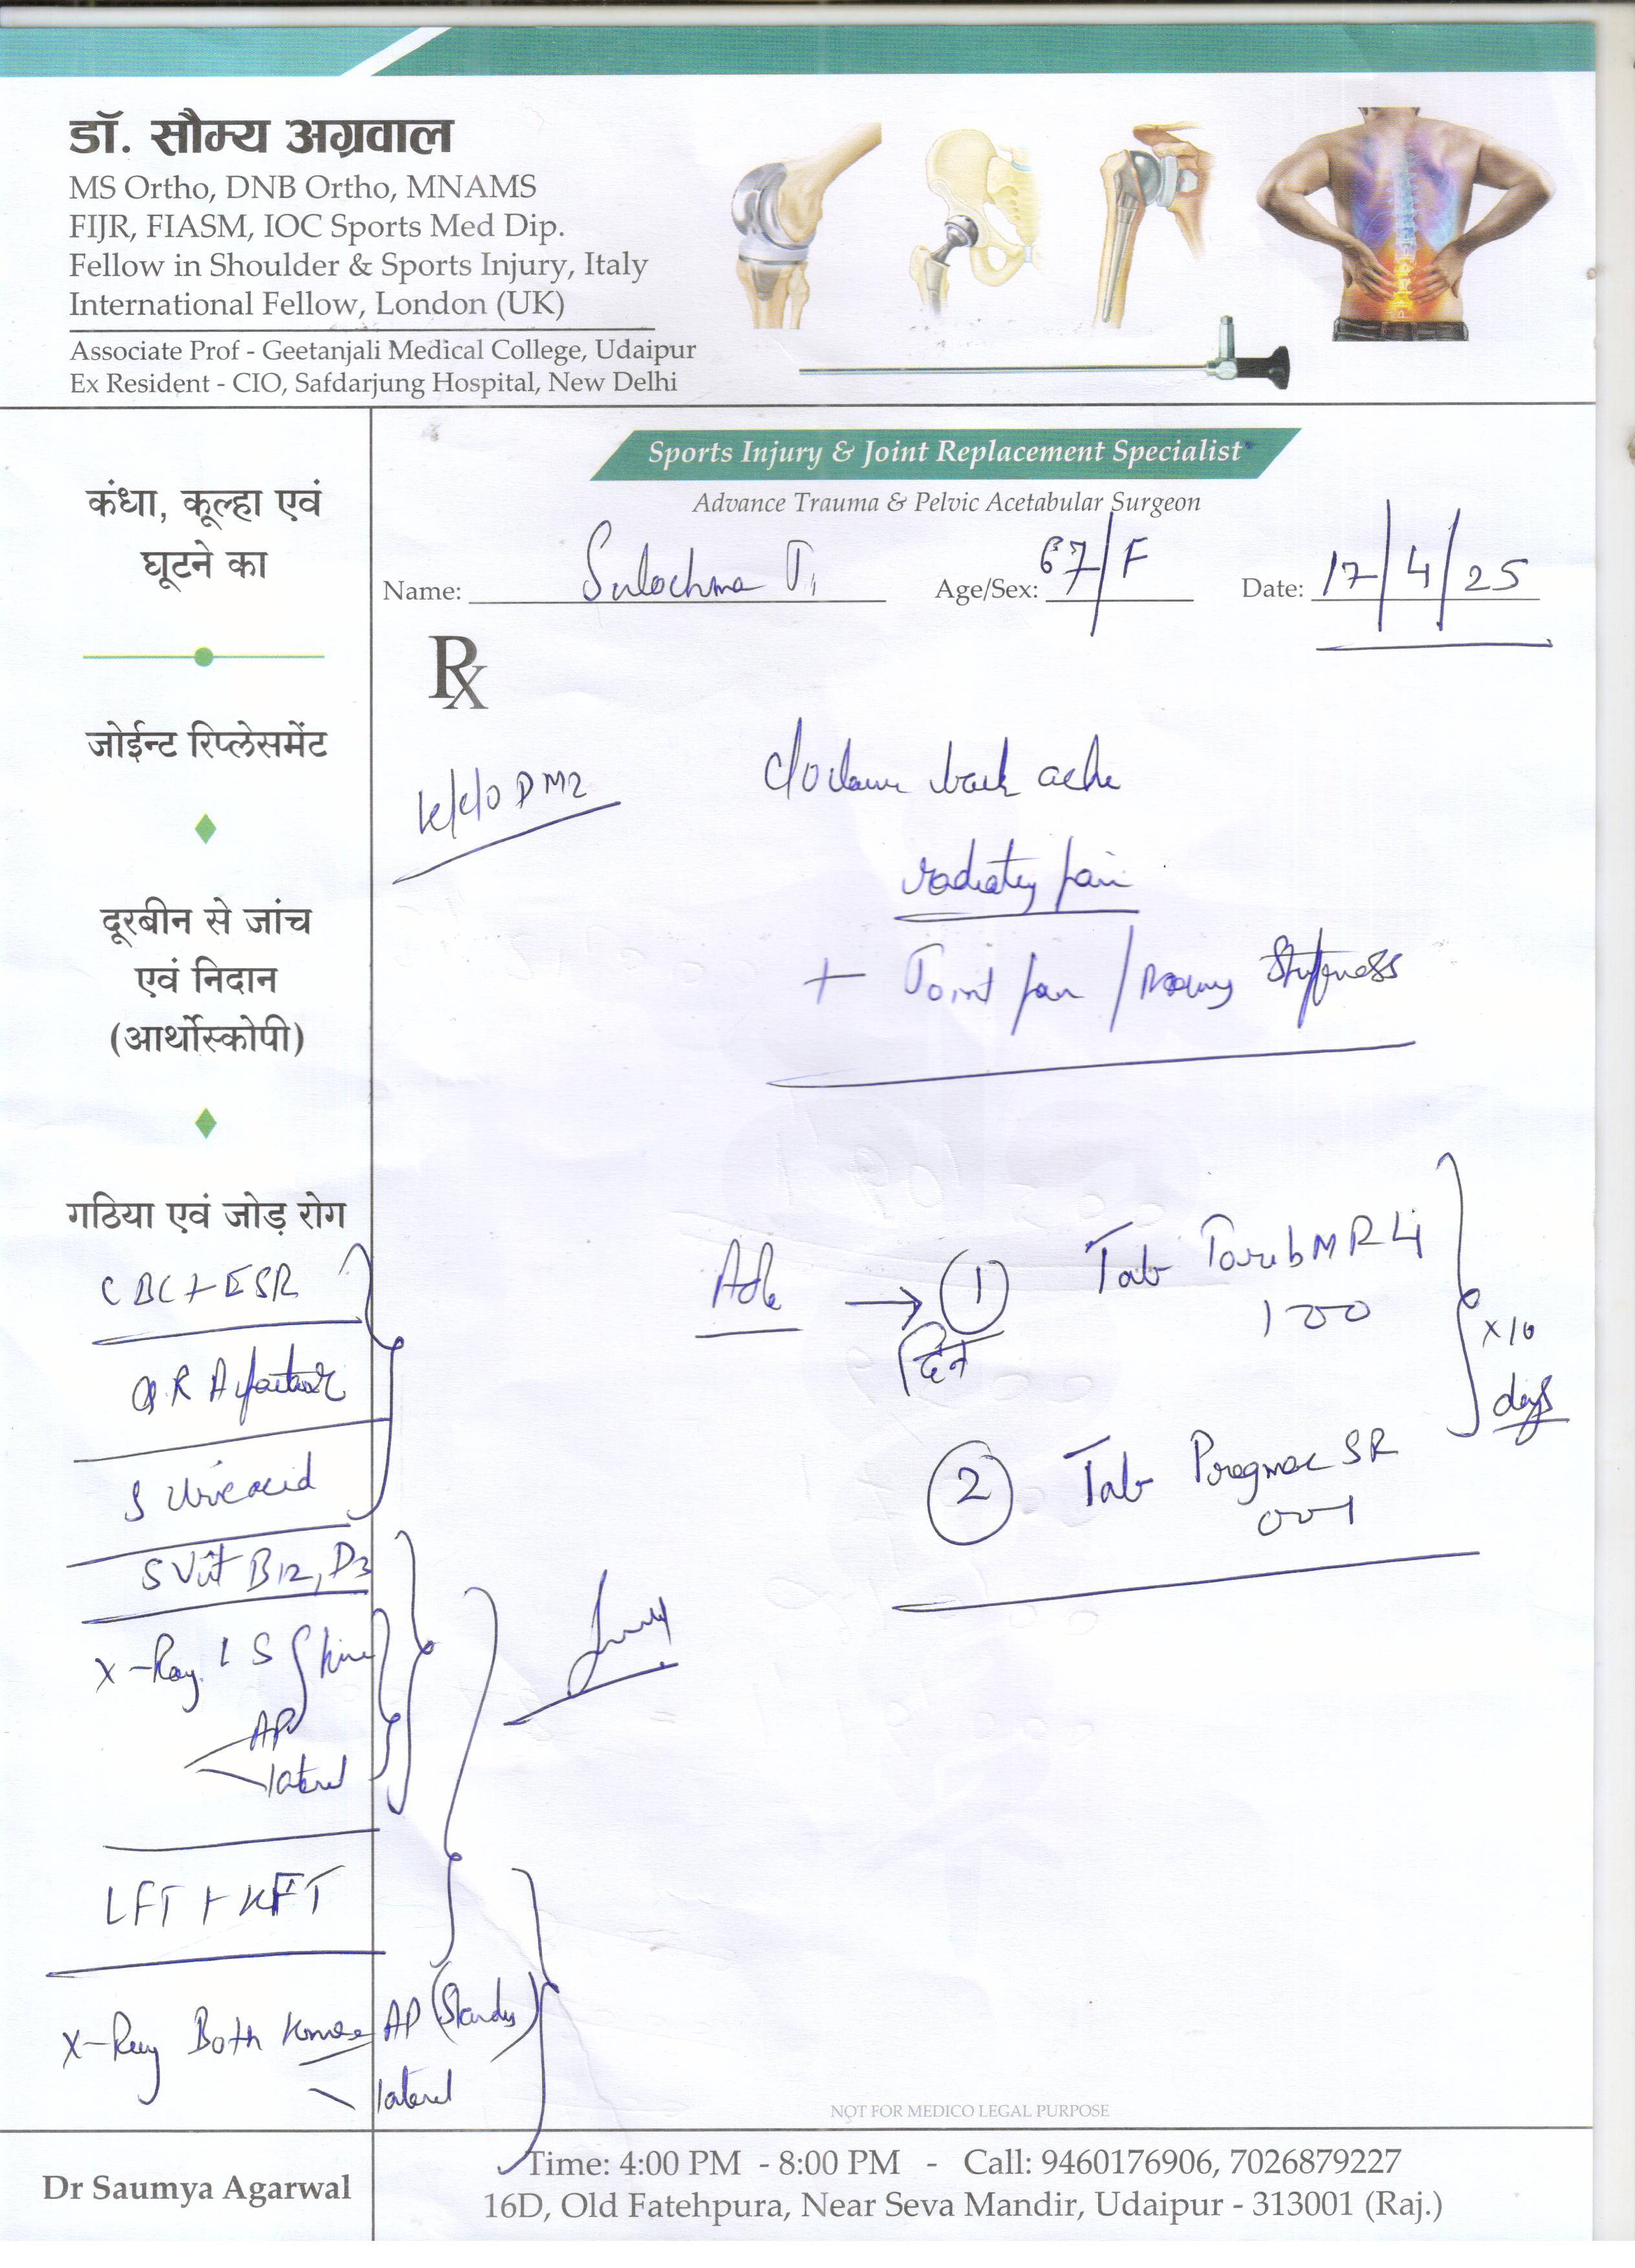 डॉ. सौम्य अग्रवाल
MS Ortho, DNB Ortho, MNAMS
FIJR, FIASM, IOC Sports Med Dip.
Fellow in Shoulder & Sports Injury, Italy
International Fellow, London (UK)
Associate Prof - Geetanjali Medical College, Udaipur
Ex Resident - CIO, Safdarjung Hospital, New Delhi
Sports Injury & Joint Replacement Specialist
Advance Trauma & Pelvic Acetabular Surgeon
Name: Sulochna
Age/Sex: 67/F
Date: 17/4/25
Rx
कंधा, कूल्हा एवं
घूटने का
जोईन्ट रिप्लेसमेंट
दूरबीन से जांच
एवं निदान
(आर्थोस्कोपी)
गठिया एवं जोड़ रोग
k/c/o DM2
c/o back ache
radiating pain
+ Joint pain / Morning Stiffness
CBC + ESR
RA factor
S Uric acid
S Vit B12, D3
X-Ray LS Spine
AP
lateral
LFT + KFT
X-Ray Both Knee AP (Standing)
lateral
Adv → 1 Tab MR 4
100
दिन
2 Tab SR
001
x 10
days
NOT FOR MEDICO LEGAL PURPOSE
Dr Saumya Agarwal
Time: 4:00 PM - 8:00 PM - Call: 9460176906, 7026879227
16D, Old Fatehpura, Near Seva Mandir, Udaipur - 313001 (Raj.)